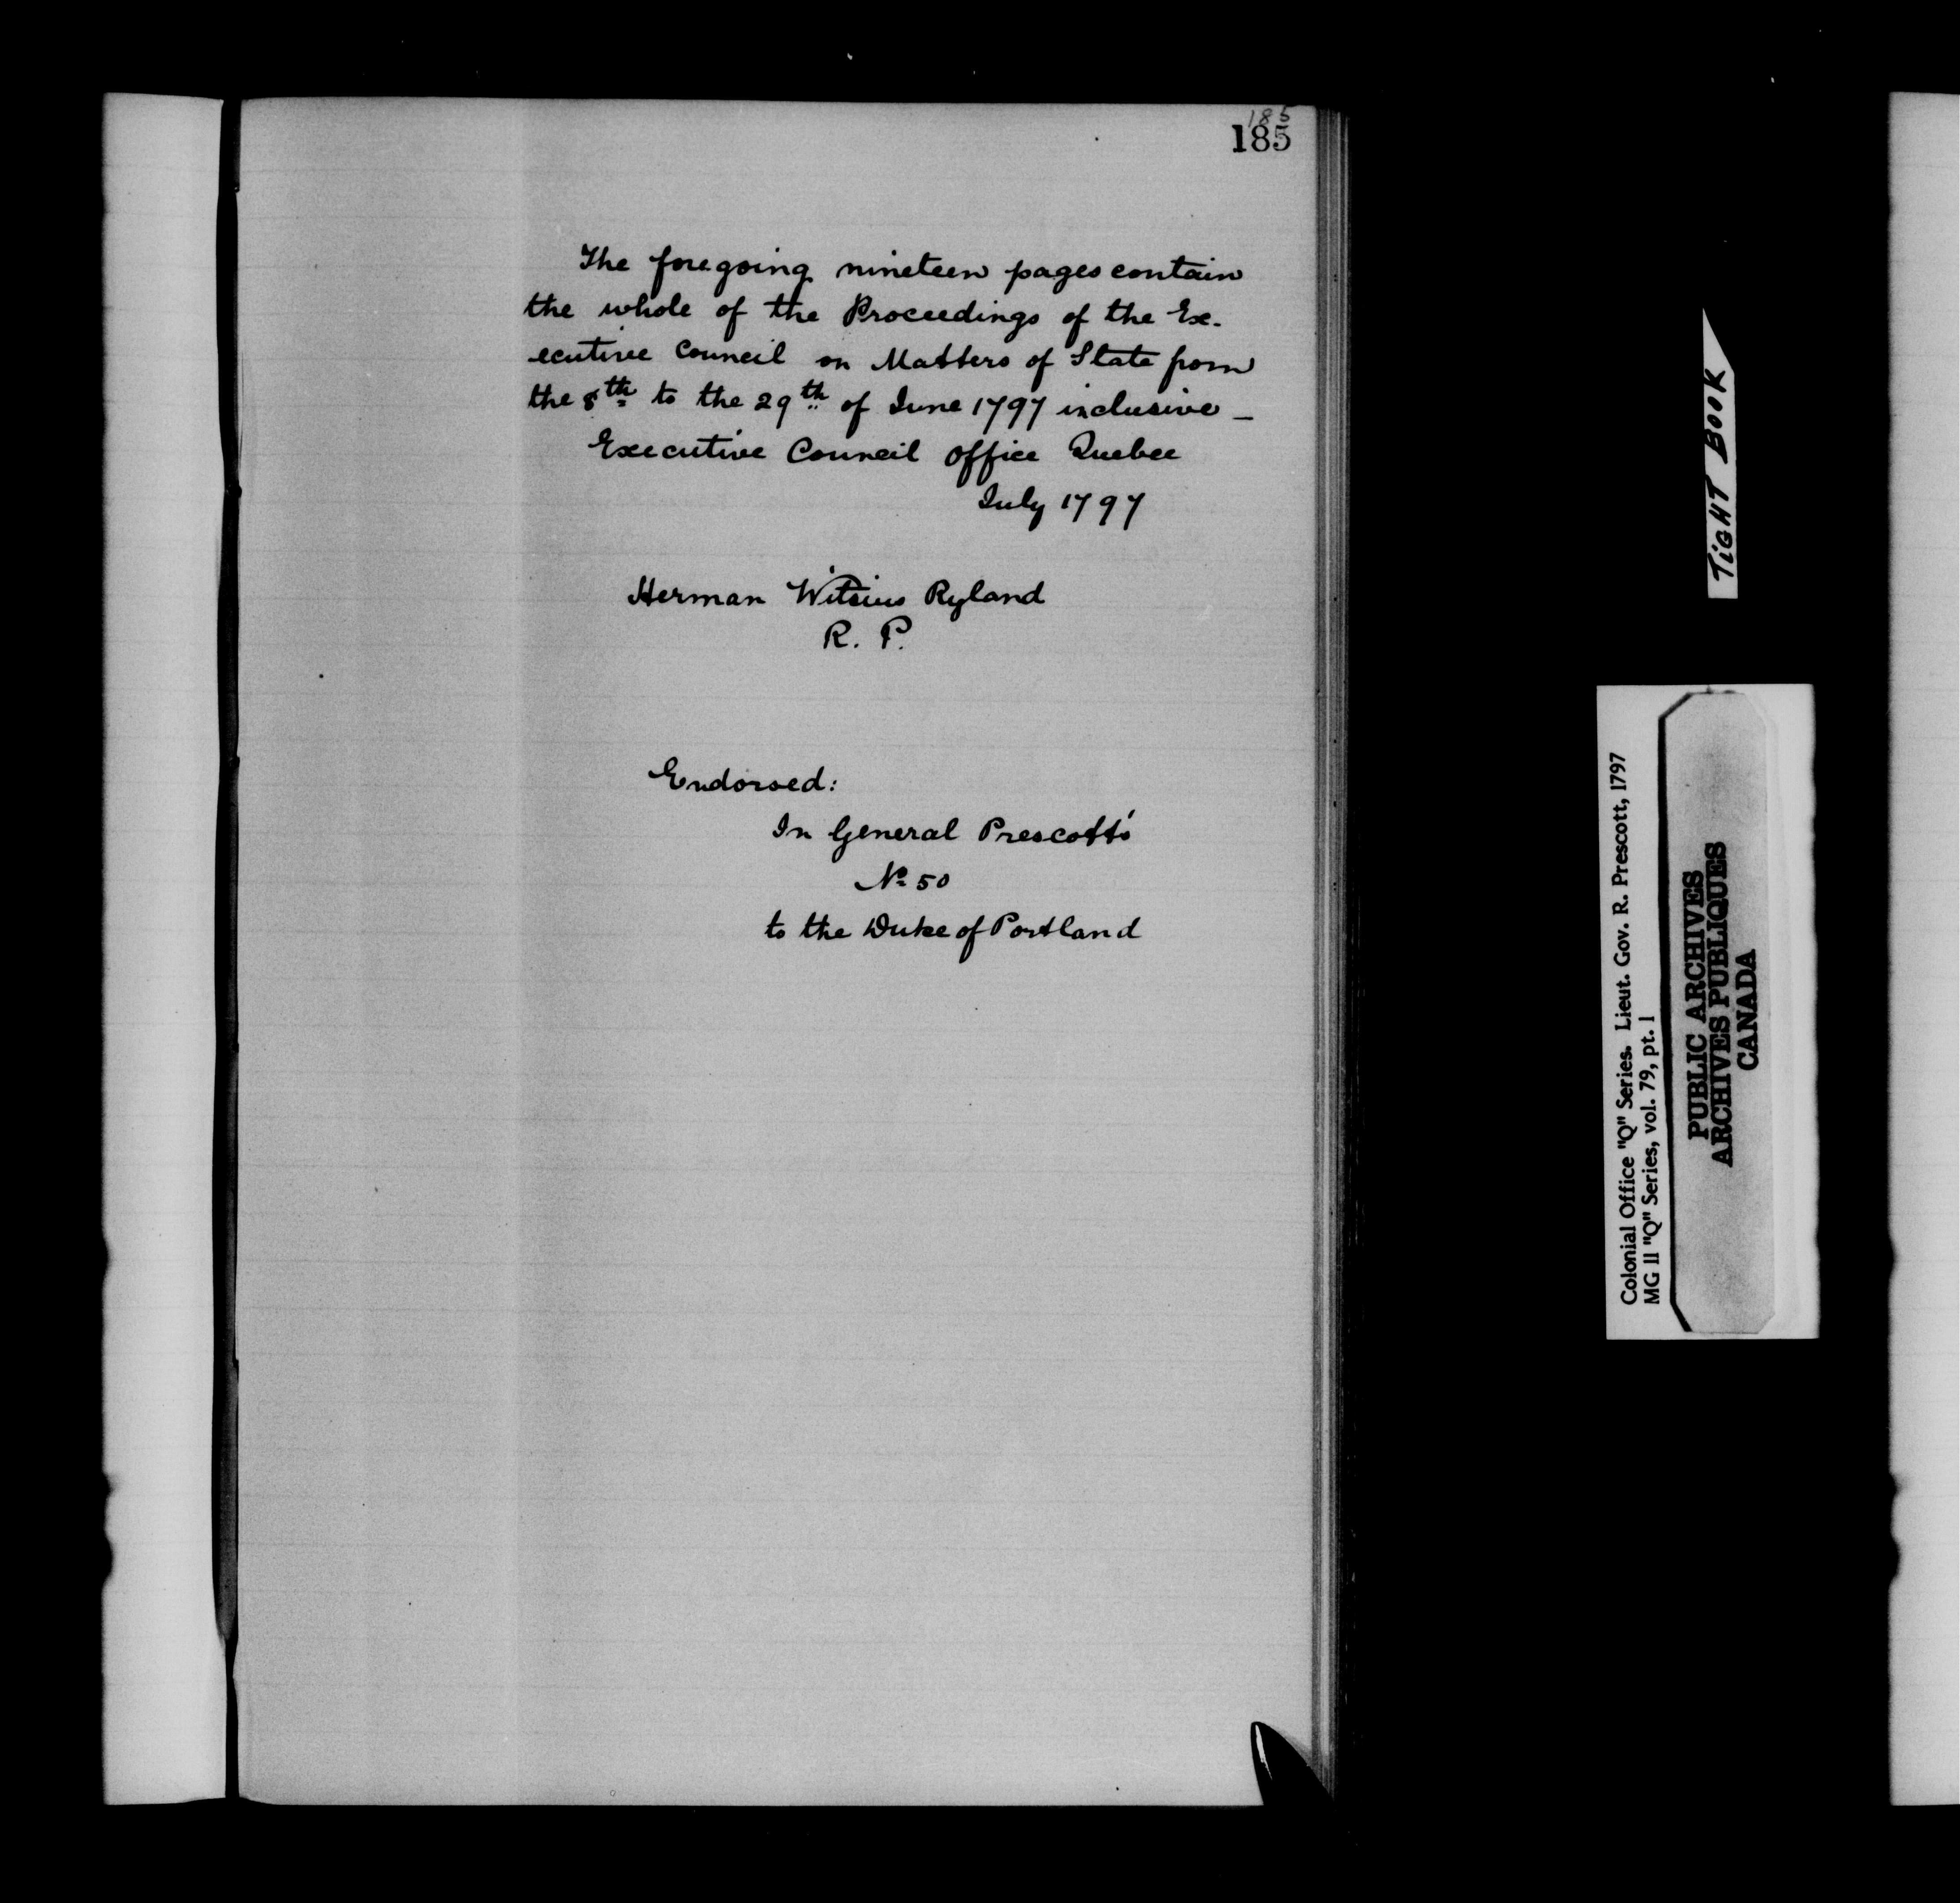 185
185
The foregoing nineteen pages contain
the whole of the Proceedings of the Ex-
ecutive Council on Matters of State from
the 8th to the 29th of June 1797 inclusive —
Executive Council Office Quebec
July 1797
Herman Witsius Ryland
R. P.
Endorsed:
In General Prescott's
No 50
to the Duke of Portland
TIGHT BOOK
Colonial Office "Q" Series. Lieut. Gov. R. Prescott, 1797
MG 11 "Q" Series, vol. 79, pt. 1
PUBLIC ARCHIVES
ARCHIVES PUBLIQUES
CANADA